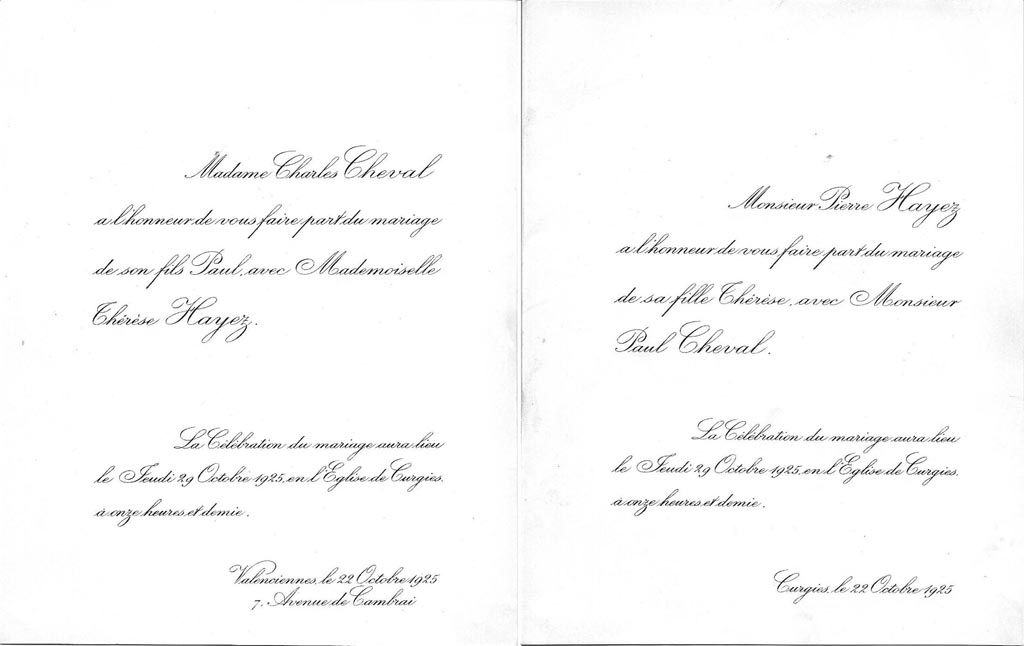 Madame Charles Cheval
a l'honneur de vous faire part du mariage
de son fils Paul, avec Mademoiselle
Thérèse Hayez.
La Célébration du mariage aura lieu
le Jeudi 29 Octobre 1925, en l'Eglise de Curgies,
à onze heures et demie.
Valenciennes, le 22 Octobre 1925
7, Avenue de Cambrai
Monsieur Pierre Hayez
a l'honneur de vous faire part du mariage
de sa fille Thérèse, avec Monsieur
Paul Cheval.
La Célébration du mariage aura lieu
le Jeudi 29 Octobre 1925, en l'Eglise de Curgies,
à onze heures et demie.
Curgies, le 22 Octobre 1925